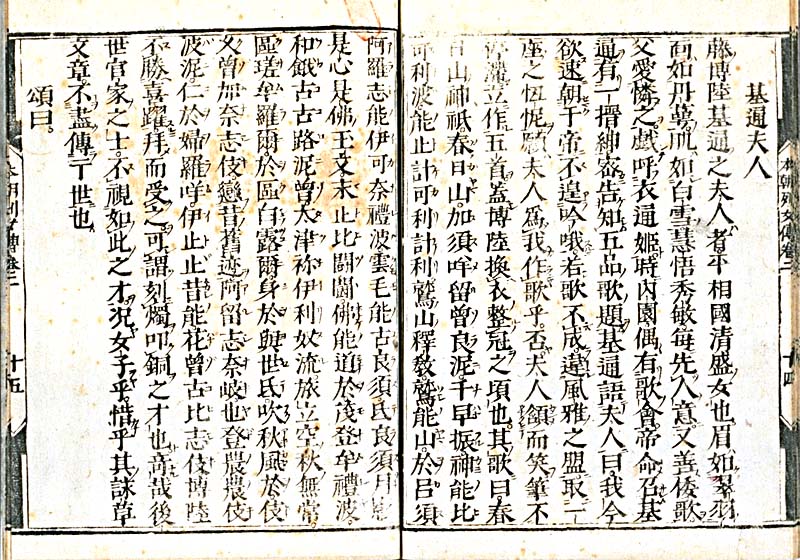 基通夫人
藤博陸基通之夫人者平相國清盛女也眉如翠羽
面如丹萼肌如白雪慧悟秀敏每先人意又善倭歌
父愛憐之戲呼衣通姬時內園偶有歌會帝命召基
通有一搢紳密告知五品歌題基通語夫人曰我今
欲速朝于帝不遑吟哦若歌不成違風雅之盟取一
座之忸怩願夫人爲我作歌乎否夫人頷而笑筆不
停灑立作五首蓋博陸換衣整冠之頃也其歌曰春
日山神祇春日山加須牟留曾良泥千早振神能比
可利波能止計可利計利鷲山釋教鷲能山於呂須
十四
阿羅志能伊可奈禮波雲毛能古良須氐良須月影
是心是佛王文末止比闘闔佛能道於茂登牟禮波
和餓古古路泥曾太津祢伊利奴流旅立空秋無常
區瑳牟羅爾於區白露爾身於與世氐吹秋風於伎
久曾加奈志伎戀昔舊迹阿留志奈岐也登農農伎
波泥仁於婦羅咩伊止止昔能花曾古比志伎博陸
不勝喜躍拜而受之可謂刻燭叩銅之才也高哉後
世官家之士不視如此之才況女子乎惜乎其詠草
文章不盡傳于世也
頌曰。
本朝列女傳卷二 十五